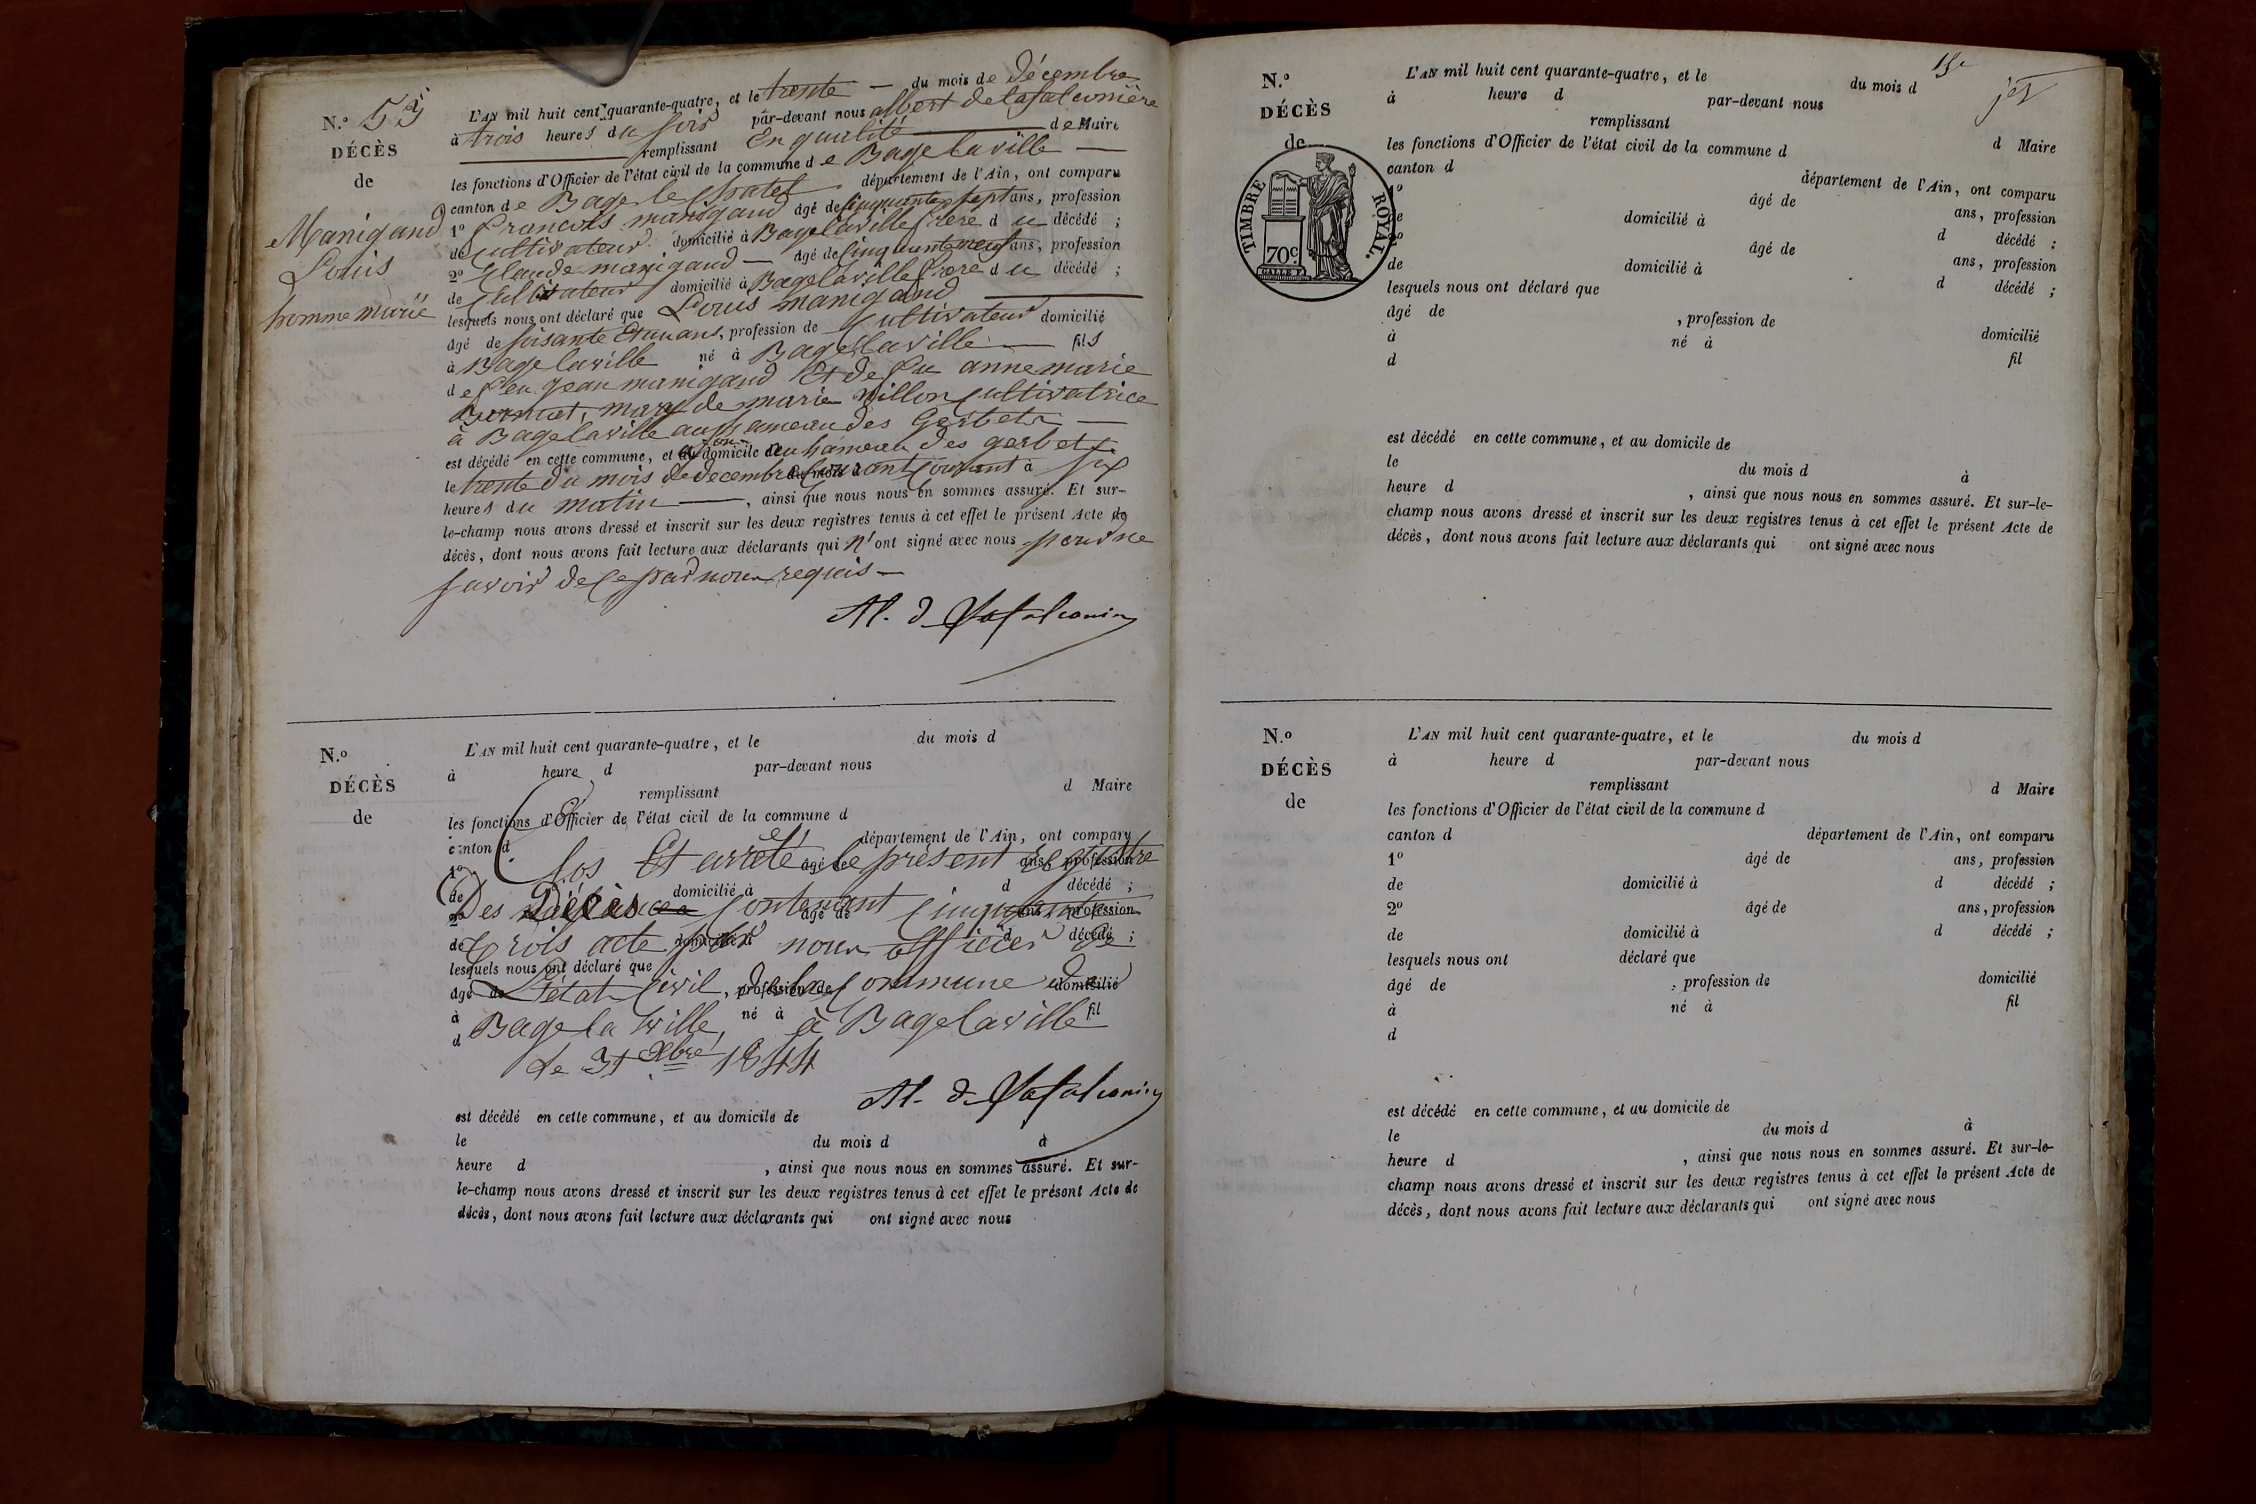 N.º 53
DÉCÈS
de
Manigand
Louis
homme marié
L'AN mil huit cent quarante-quatre, et le trente — du mois de décembre
à trois heures du soir par-devant nous albert de lafalconnière
remplissant En qualité de Maire
les fonctions d'Officier de l'état civil de la commune de Bage la ville —
canton de Bage le Chatel département de l'Ain, ont comparu
1º francois manigand âgé de cinquante sept ans, profession
de cultivateur domicilié à Bage la ville frere du décédé ;
2º Claude manigand — âgé de cinquante neuf ans, profession
de Cultivateur domicilié à Bage la ville frere du décédé ;
lesquels nous ont déclaré que Louis manigand
âgé de soisante et un ans, profession de Cultivateur domicilié
à Bage la ville né à Bage la ville — fils
de feu Jean manigand Et de feu anne marie
mary de marie nillon Cultivatrice
à Bage la ville au hameau des Gerbets —
est décédé en cette commune, et son domicile au hameau des gerbets
le trente du mois de decembre Courant à six
heures du matin —, ainsi que nous nous en sommes assuré. Et sur-
le-champ nous avons dressé et inscrit sur les deux registres tenus à cet effet le présent Acte de
décès, dont nous avons fait lecture aux déclarants qui n'ont signé avec nous pour ne
savoir de ce par nous requis —
Al. d Lafalconier
N.º
DÉCÈS
de
L'AN mil huit cent quarante-quatre, et le du mois d
à heure d par-devant nous
remplissant d Maire
les fonctions d'Officier de l'état civil de la commune d
canton d département de l'Ain, ont comparu
Clos Et arrêté le présent registre
1º âgé de ans, profession
de domicilié à d décédé ;
Des Décès Contenant Cinquante
2º âgé de ans, profession
trois acte par nous officier de
de domicilié à d décédé ;
lesquels nous ont déclaré que
L'état Civil, de la Commune de
âgé de profession de domicilié
à né à fil
Bage la ville, à Bage la ville
d
Le 31 Xbre 1844
Al. d Lafalconier
est décédé en cette commune, et au domicile de
le du mois d à
heure d , ainsi que nous nous en sommes assuré. Et sur-
le-champ nous avons dressé et inscrit sur les deux registres tenus à cet effet le présent Acte de
décès, dont nous avons fait lecture aux déclarants qui ont signé avec nous
N.º
DÉCÈS
de
TIMBRE ROYAL.
70c
L'AN mil huit cent quarante-quatre, et le du mois d
à heure d par-devant nous
remplissant d Maire
les fonctions d'Officier de l'état civil de la commune d
canton d département de l'Ain, ont comparu
1º âgé de ans, profession
de domicilié à d décédé ;
2º âgé de ans, profession
de domicilié à d décédé ;
lesquels nous ont déclaré que
âgé de , profession de domicilié
à né à fil
d
est décédé en cette commune, et au domicile de
le du mois d à
heure d , ainsi que nous nous en sommes assuré. Et sur-le-
champ nous avons dressé et inscrit sur les deux registres tenus à cet effet le présent Acte de
décès, dont nous avons fait lecture aux déclarants qui ont signé avec nous
N.º
DÉCÈS
de
L'AN mil huit cent quarante-quatre, et le du mois d
à heure d par-devant nous
remplissant d Maire
les fonctions d'Officier de l'état civil de la commune d
canton d département de l'Ain, ont comparu
1º âgé de ans, profession
de domicilié à d décédé ;
2º âgé de ans, profession
de domicilié à d décédé ;
lesquels nous ont déclaré que
âgé de , profession de domicilié
à né à fil
d
est décédé en cette commune, et au domicile de
le du mois d à
heure d , ainsi que nous nous en sommes assuré. Et sur-le-
champ nous avons dressé et inscrit sur les deux registres tenus à cet effet le présent Acte de
décès, dont nous avons fait lecture aux déclarants qui ont signé avec nous